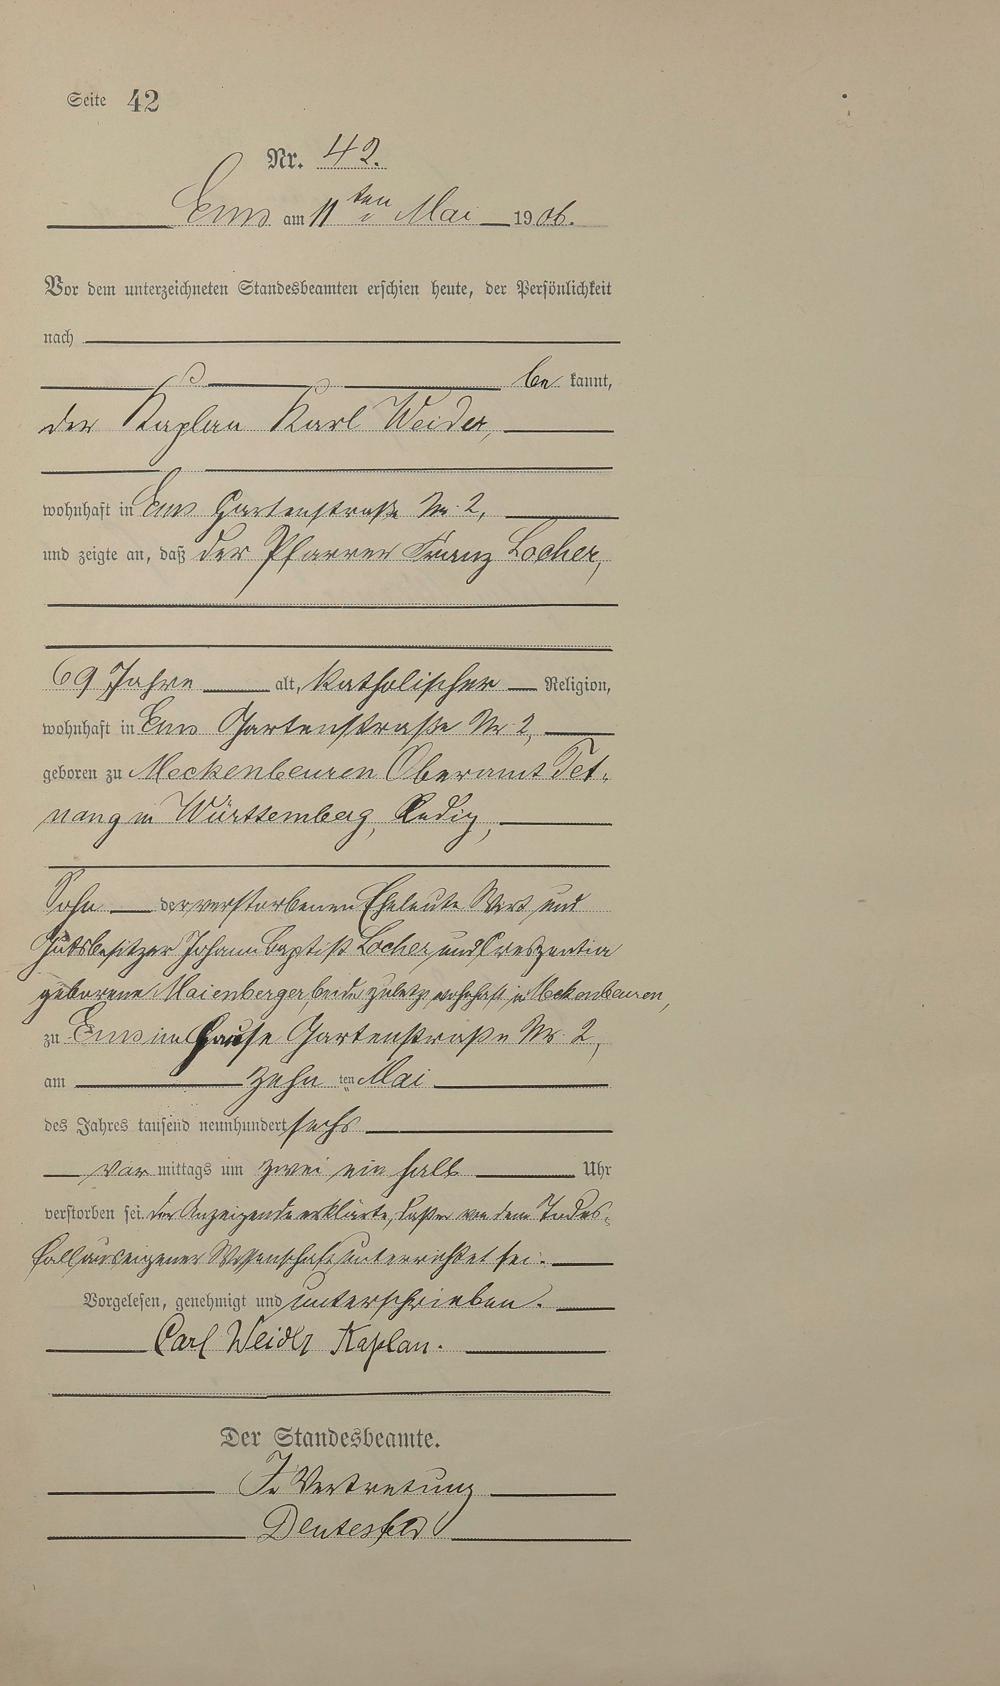 Seite 42
Nr. 42.
Ems am 11ten Mai 1906.
Vor dem unterzeichneten Standesbeamten erschien heute, der Persönlichkeit
nach
be kannt,
der Kaplan Karl Weider,
wohnhaft in Ems Gartenstraße Nr. 2,
und zeigte an, daß der Pfarrer Franz Locher,
69 Jahre alt, katholischer Religion,
wohnhaft in Ems Gartenstraße Nr 2,
geboren zu Meckenbeuren Oberamt Tet-
nang in Württemberg, ledig,
Sohn der verstorbenen Eheleute Wirt und
Gutsbesitzer Johann Baptist Locher und Creszentia
geborene Maienberger, beide zuletzt wohnhaft in Meckenbeuren,
zu Ems im Hause Gartenstraße Nr. 2,
am zehn ten Mai
des Jahres tausend neunhundert sechs
vor mittags um zwei ein halb Uhr
verstorben sei. der Anzeigende erklärte, daß er von dem Todes-
fall aus eigener Wissenschaft unterrichtet sei.
Vorgelesen, genehmigt und unterschrieben.
Carl Weider Kaplan.
Der Standesbeamte.
In Vertretung